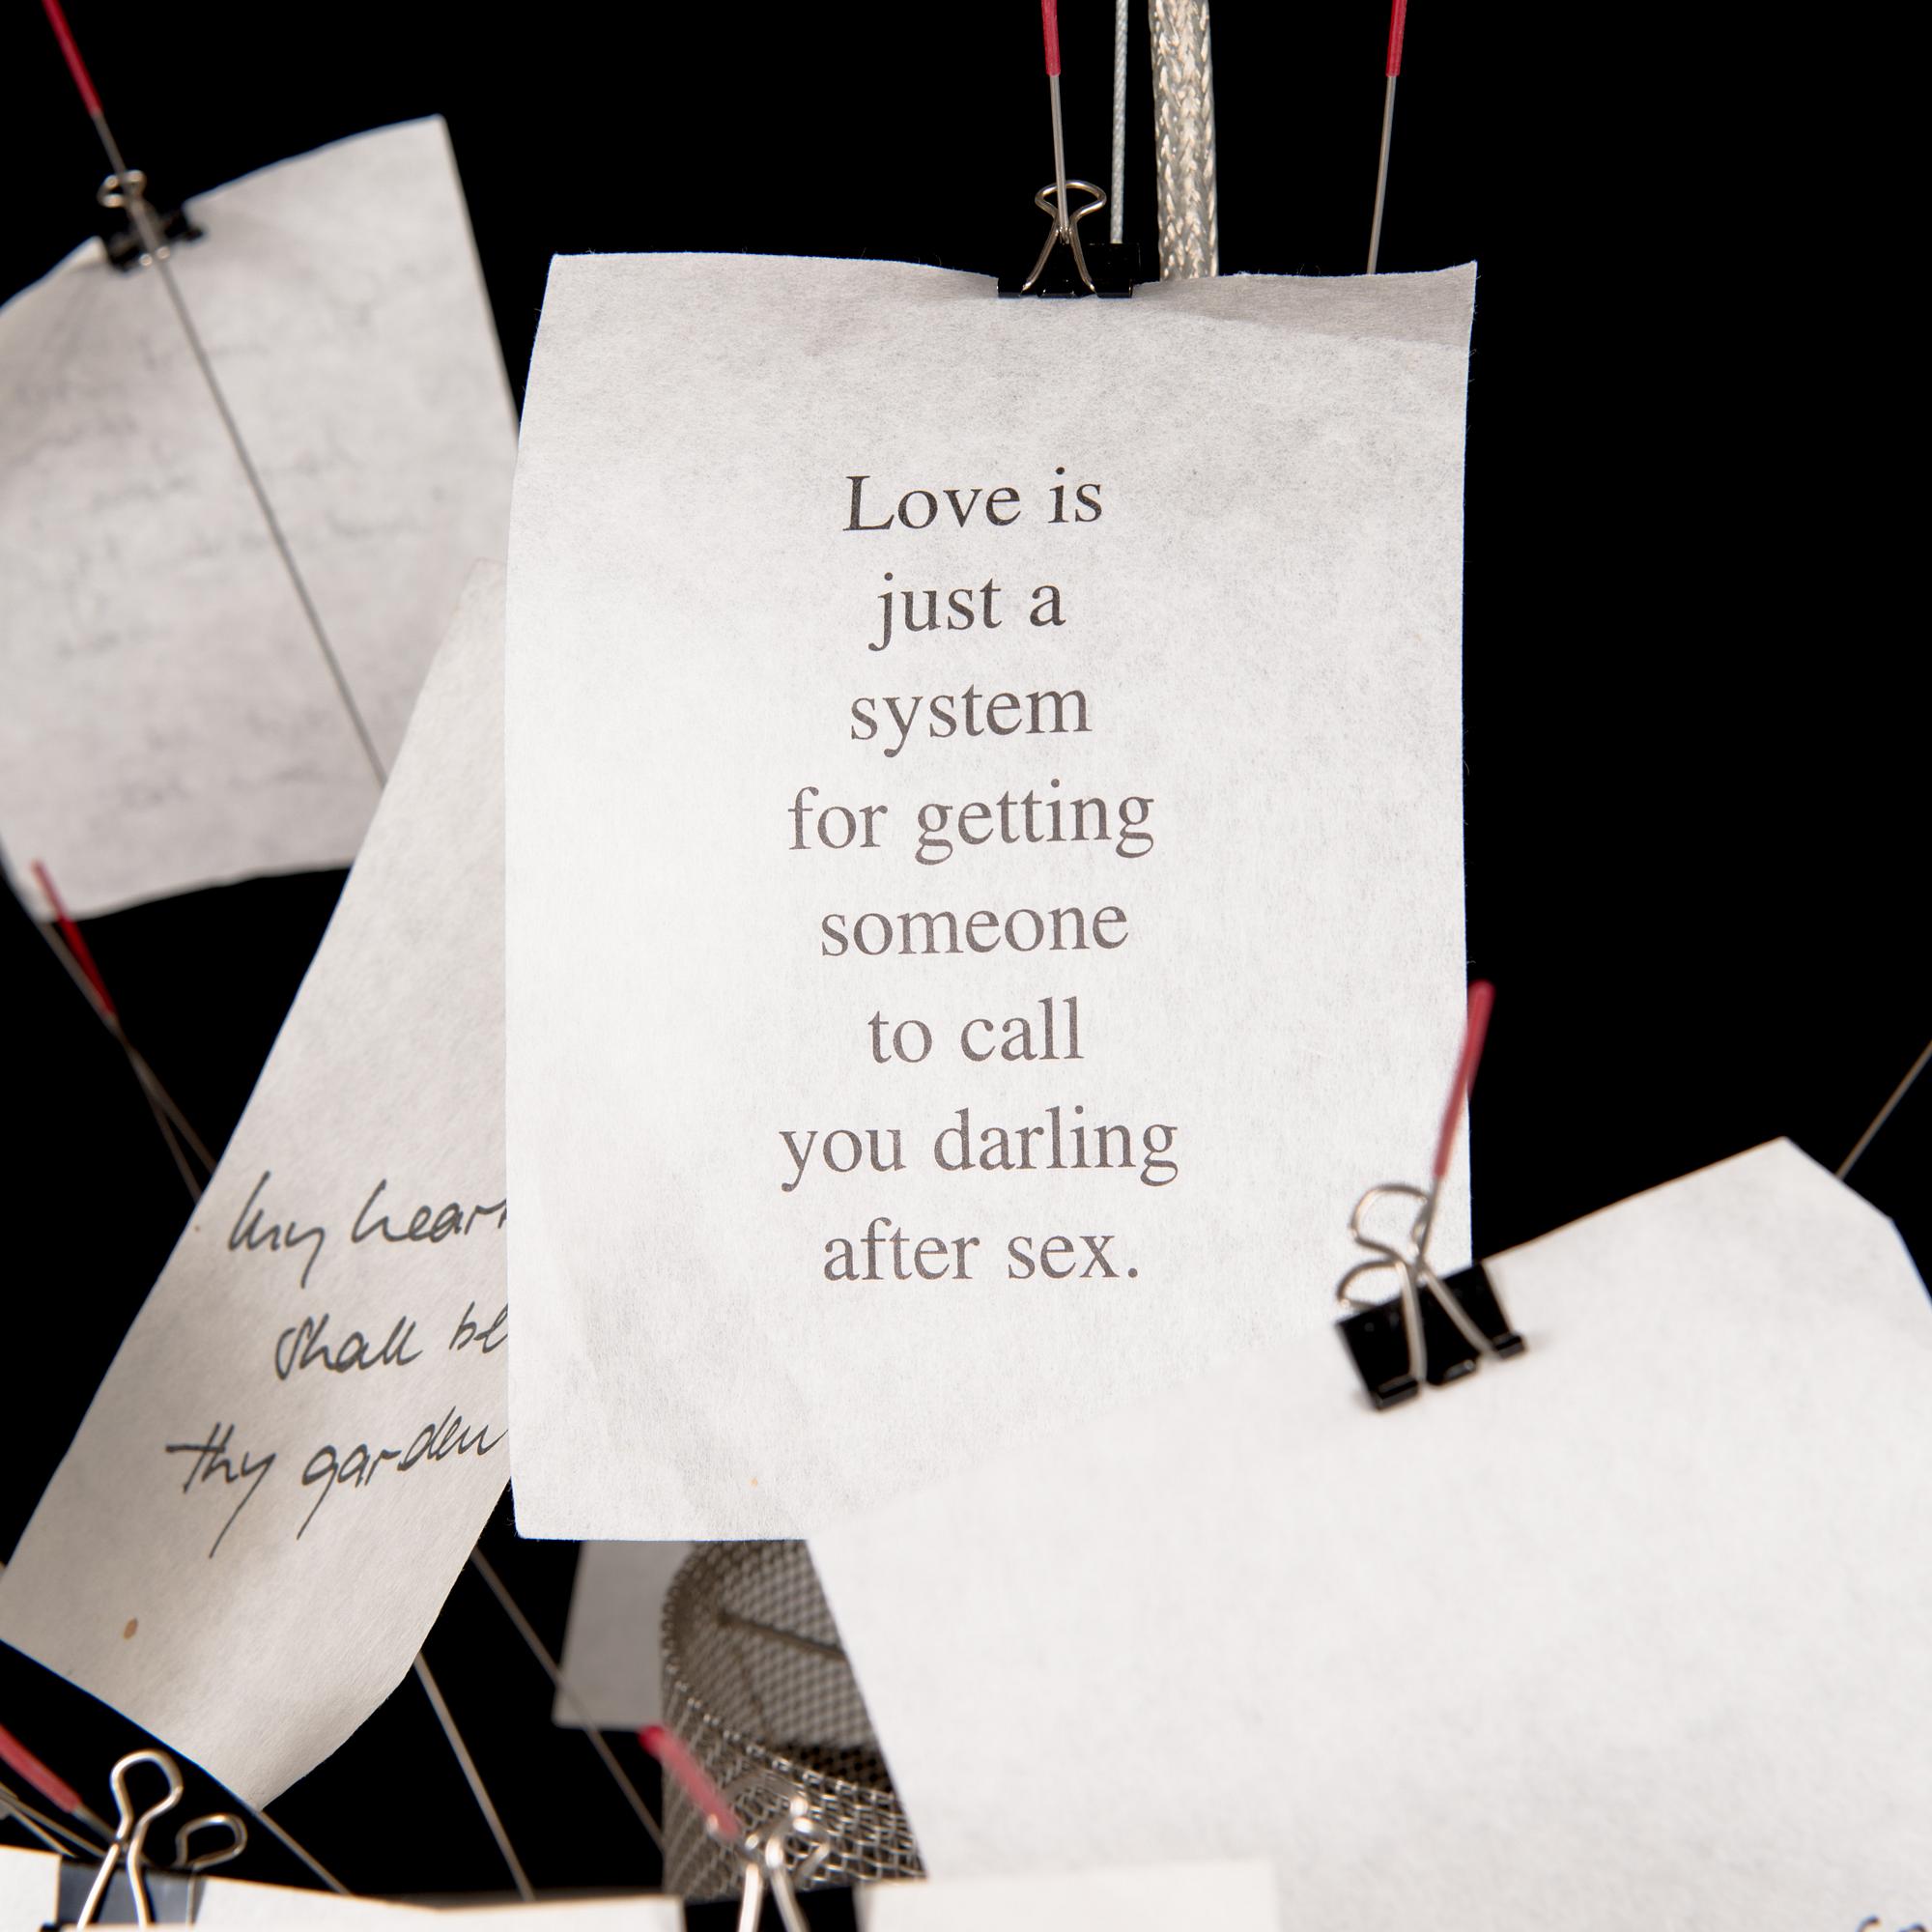 Love is
just a
system
for getting
someone
to call
you darling
after sex.
my heart
shall be
thy garden